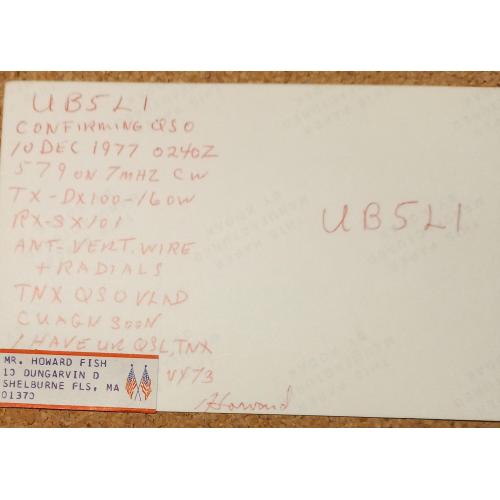 UB5L1
CONFIRMING QSO
10 DEC 1977 0240Z
579 ON 7MHZ CW
TX-DX100-160W
RX-SX101
ANT-VERT. WIRE
+ RADIALS
TNX QSO VLAD
CUAGN SOON
I HAVE UR QSL, TNX
VY 73
Howard
UB5L1
MR. HOWARD FISH
10 DUNGARVIN D
SHELBURNE FLS, MA
01370